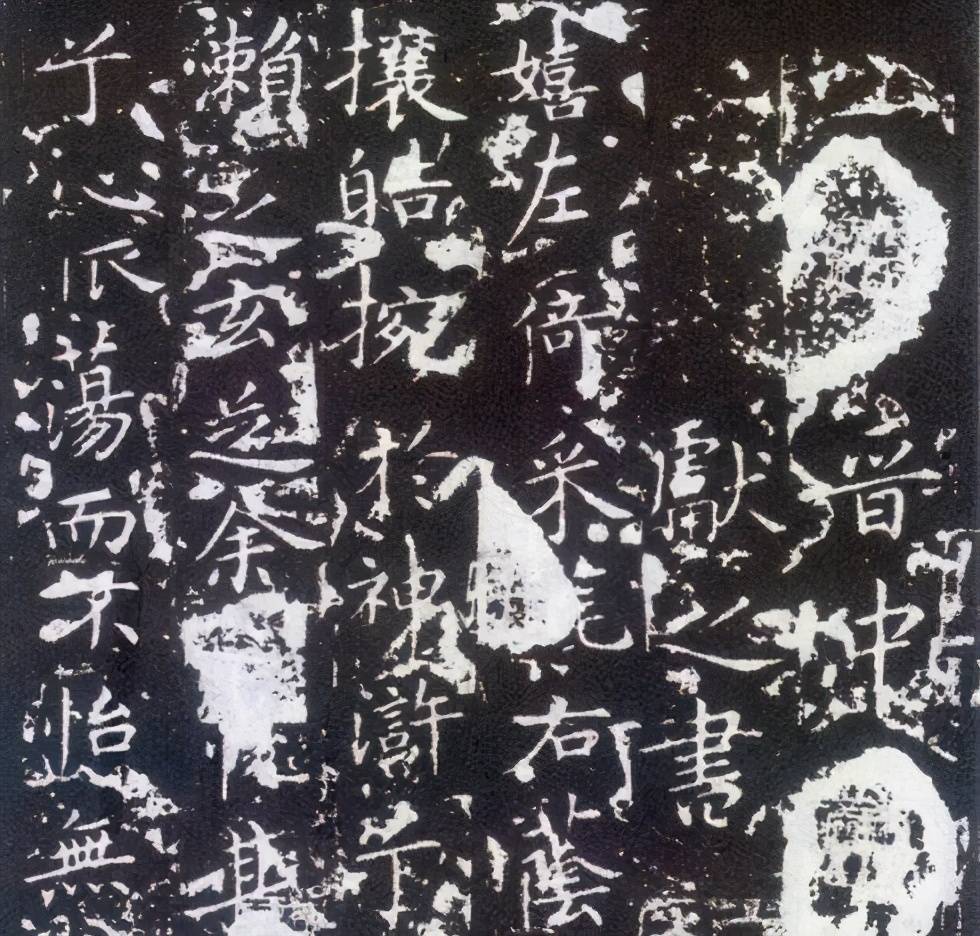 晉中
獻之書
嬉左倚采旄右蔭
攘皓捥於神滸兮
瀨之玄芝余其
兮心振蕩而不怡無